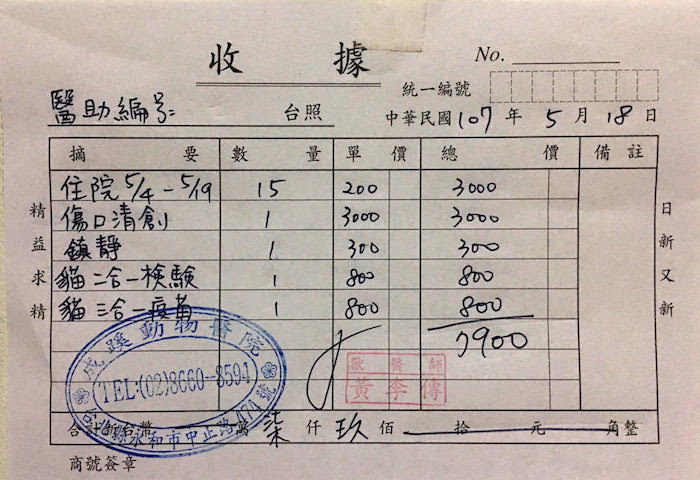 收據
No.
統一編號
醫助編號:
台照
中華民國 107 年 5 月 18 日
摘要 數量 單價 總價 備註
住院 5/4-5/19 15 200 3000
傷口清創 1 3000 3000
鎮靜 1 300 300
貓 二合一檢驗 1 800 800
貓 三合一疫苗 1 800 800
7900
精益求精
日新又新
成蹊動物醫院
TEL:(02)8660-8594
台北縣永和市中正路474號
獸醫師
黃李傳
合計新台幣 萬 柒 仟 玖 佰 拾 元 角整
商號簽章